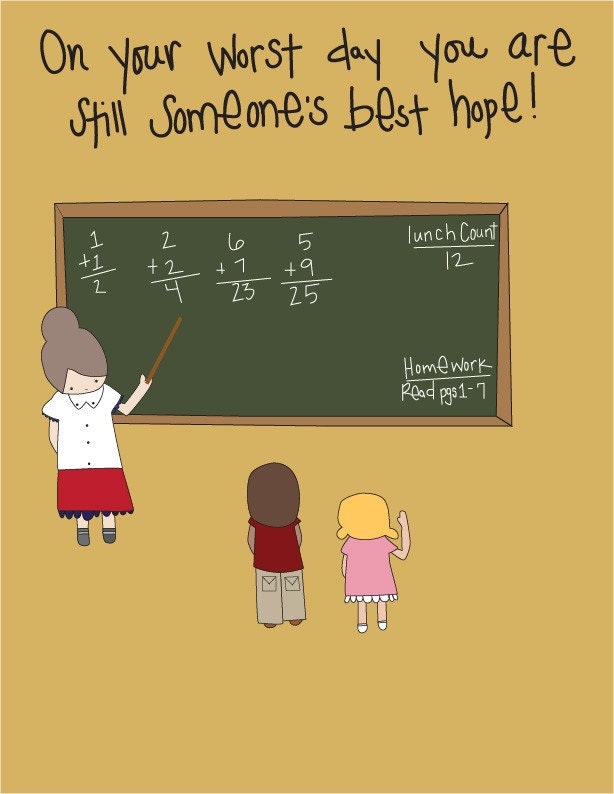 On your worst day you are
still someone's best hope!
1 2 6 5
+1 +2 +7 +9
2 4 23 25
lunch Count
12
Homework
Read pgs 1-7